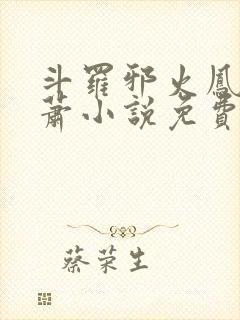 斗羅邪火鳳
蕭小說免費
蔡荣生